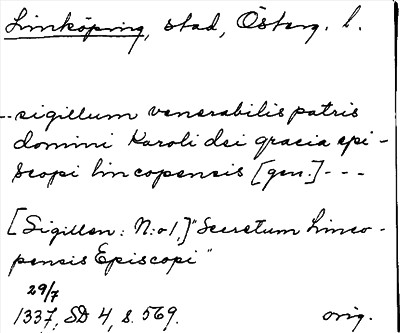 Linköping, stad, Österg. l.
--sigillum venerabilis patris
domini Karoli dei gracia epi-
scopi lincopensis [gen.]---
[Sigillen: N:o 1.] "Secretum Linco-
pensis Episcopi"
29/7
1337, SD 4, s. 569. orig.